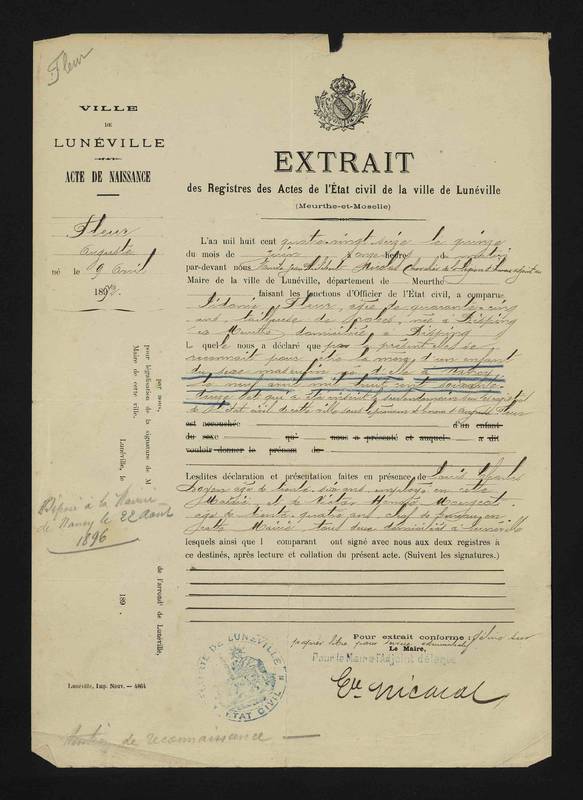 Fleur
VILLE
DE
LUNÉVILLE
ACTE DE NAISSANCE
Fleur
Auguste
né le 9 Avril
189
EXTRAIT
des Registres des Actes de l'État civil de la ville de Lunéville
(Meurthe-et-Moselle)
L'an mil huit cent quatre-vingt seize le quinze
du mois de Juin à onze heures du matin
par-devant nous Chevalier de la Légion d'honneur adjoint au
Maire de la ville de Lunéville, département de Meurthe
faisant les fonctions d'Officier de l'État civil, a comparu
Sidonie Fleur, âgée de quarante-cinq
ans, de née à
domiciliée à
L quelle nous a déclaré que par la présente elle se
reconnait pour être la mère d'un enfant
du sexe masculin né d'elle à Nancy
le neuf avril mil huit cent soixante
et qui a été inscrit sur les registres
de l'État civil de cette ville sous les prénoms et nom d'Auguste Fleur
est accouchée d'un enfant
du sexe qu' nous a présenté et auquel a dit
vouloir donner le prénom de
Lesdites déclaration et présentation faites en présence de Louis Charles
âgé de trente six ans, employé en cette
Mairie, et de Victor
âgé de trente quatre ans, chef de bureau en
cette Mairie, tous deux domiciliés à Lunéville
lesquels ainsi que l comparant ont signé avec nous aux deux registres à
ce destinés, après lecture et collation du présent acte. (Suivent les signatures.)
par nous,
pour légalisation de la signature de M
Maire de cette ville.
Lunéville, le
189 .
de l'arrond' de Lunéville,
Déposé à la Mairie
de Nancy le 22 Août
1896
Pour extrait conforme délivré sur
papier libre pour service administratif
Le Maire,
Pour le Maire l'Adjoint délégué
MAIRIE DE LUNÉVILLE
ETAT CIVIL
Lunéville, Imp. Nouv. — 4864
de reconnaissance